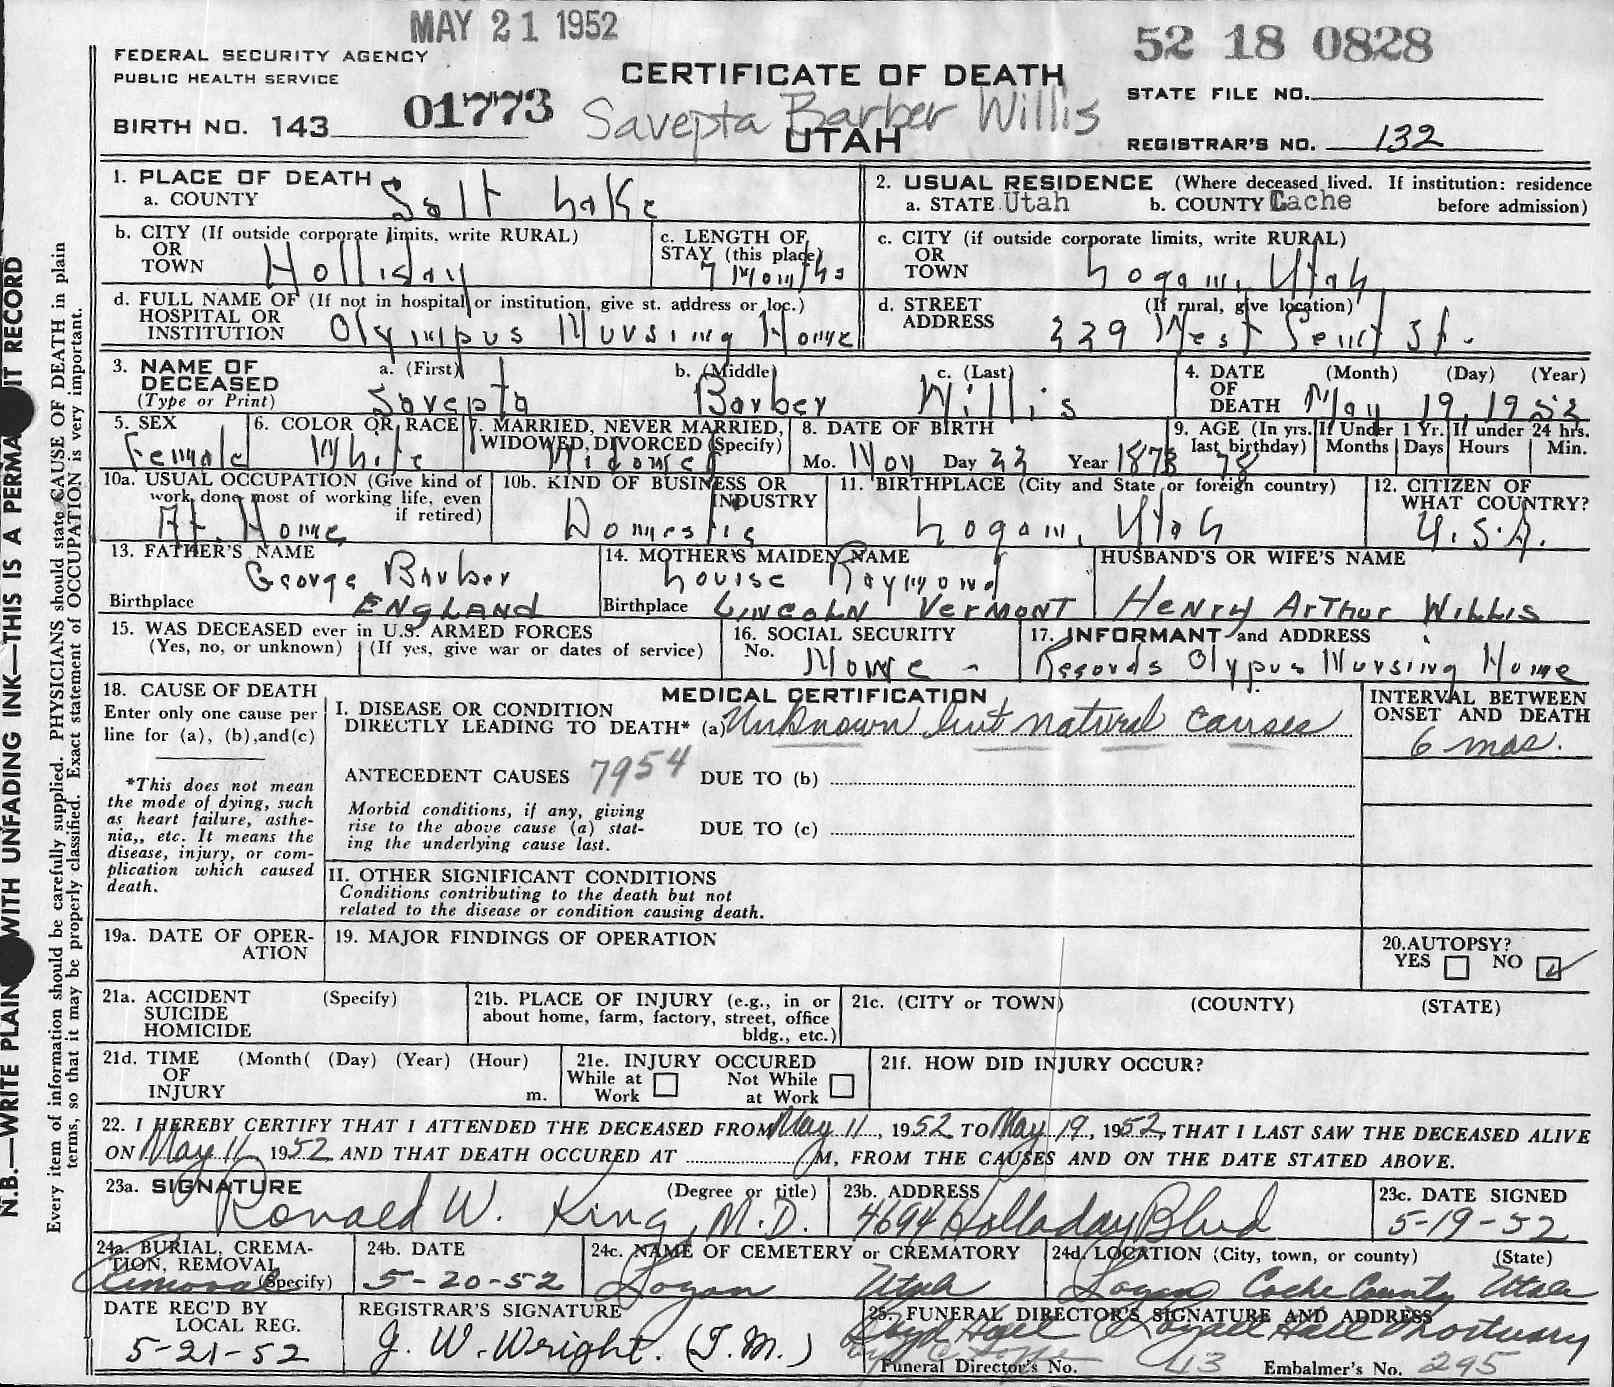 MAY 21 1952
52 18 0828
FEDERAL SECURITY AGENCY
PUBLIC HEALTH SERVICE
CERTIFICATE OF DEATH
STATE FILE NO.
BIRTH NO. 143 01773
Savepta Barber Willis
UTAH
REGISTRAR'S NO. 132
1. PLACE OF DEATH
a. COUNTY Salt Lake
2. USUAL RESIDENCE (Where deceased lived. If institution: residence before admission)
a. STATE Utah b. COUNTY Cache
b. CITY (If outside corporate limits, write RURAL) OR TOWN Holliday
c. LENGTH OF STAY (this place) 7 Months
c. CITY (if outside corporate limits, write RURAL) OR TOWN Logan, Utah
d. FULL NAME OF HOSPITAL OR INSTITUTION (If not in hospital or institution, give st. address or loc.) Olympus Nursing Home
d. STREET ADDRESS (If rural, give location) 229 West St.
3. NAME OF DECEASED (Type or Print) a. (First) Savepta b. (Middle) Barber c. (Last) Willis
4. DATE OF DEATH (Month) (Day) (Year) May 19, 1952
5. SEX Female
6. COLOR OR RACE White
7. MARRIED, NEVER MARRIED, WIDOWED, DIVORCED (Specify) Widowed
8. DATE OF BIRTH Mo. Nov Day 23 Year 1873
9. AGE (In yrs. last birthday) 78 If Under 1 Yr. Months Days If under 24 hrs. Hours Min.
10a. USUAL OCCUPATION (Give kind of work done most of working life, even if retired) At. Home
10b. KIND OF BUSINESS OR INDUSTRY Domestic
11. BIRTHPLACE (City and State or foreign country) Logan, Utah
12. CITIZEN OF WHAT COUNTRY? U.S.A.
13. FATHER'S NAME George Barber
Birthplace ENGLAND
14. MOTHER'S MAIDEN NAME Louise Raymond
Birthplace LINCOLN VERMONT
HUSBAND'S OR WIFE'S NAME
HENRY ARTHUR WILLIS
15. WAS DECEASED ever in U.S. ARMED FORCES
(Yes, no, or unknown) (If yes, give war or dates of service)
16. SOCIAL SECURITY No. None -
17. INFORMANT and ADDRESS
Records Olypus Nursing Home
18. CAUSE OF DEATH
Enter only one cause per line for (a), (b), and (c)
*This does not mean the mode of dying, such as heart failure, asthenia,, etc. It means the disease, injury, or complication which caused death.
MEDICAL CERTIFICATION
I. DISEASE OR CONDITION DIRECTLY LEADING TO DEATH* (a) Unknown but natural causes
INTERVAL BETWEEN ONSET AND DEATH
6 mos.
ANTECEDENT CAUSES 7954 DUE TO (b)
Morbid conditions, if any, giving rise to the above cause (a) stating the underlying cause last.
DUE TO (c)
II. OTHER SIGNIFICANT CONDITIONS
Conditions contributing to the death but not related to the disease or condition causing death.
19a. DATE OF OPERATION
19. MAJOR FINDINGS OF OPERATION
20. AUTOPSY?
YES NO
21a. ACCIDENT SUICIDE HOMICIDE (Specify)
21b. PLACE OF INJURY (e.g., in or about home, farm, factory, street, office bldg., etc.)
21c. (CITY or TOWN) (COUNTY) (STATE)
21d. TIME OF INJURY (Month( (Day) (Year) (Hour) m.
21e. INJURY OCCURED
While at Work Not While at Work
21f. HOW DID INJURY OCCUR?
22. I HEREBY CERTIFY THAT I ATTENDED THE DECEASED FROM May 11, 1952 TO May 19, 1952, THAT I LAST SAW THE DECEASED ALIVE
ON May 11, 1952 AND THAT DEATH OCCURED AT M, FROM THE CAUSES AND ON THE DATE STATED ABOVE.
23a. SIGNATURE (Degree or title)
Ronald W. King, M.D.
23b. ADDRESS
4694 Holladay Blvd
23c. DATE SIGNED
5-19-52
24a. BURIAL, CREMATION, REMOVAL (Specify) Removal
24b. DATE
5-20-52
24c. NAME OF CEMETERY or CREMATORY
Logan Utah
24d. LOCATION (City, town, or county) (State)
Logan Cache County Utah
DATE REC'D BY LOCAL REG.
5-21-52
REGISTRAR'S SIGNATURE
J. W. Wright. (J.M.)
25. FUNERAL DIRECTOR'S SIGNATURE AND ADDRESS
Hall Mortuary
Funeral Director's No. 43 Embalmer's No. 295
N.B.—WRITE PLAIN WITH UNFADING INK—THIS IS A PERMA IT RECORD
Every item of information should be carefully supplied. PHYSICIANS should state CAUSE OF DEATH in plain
terms, so that it may be properly classified. Exact statement of OCCUPATION is very important.